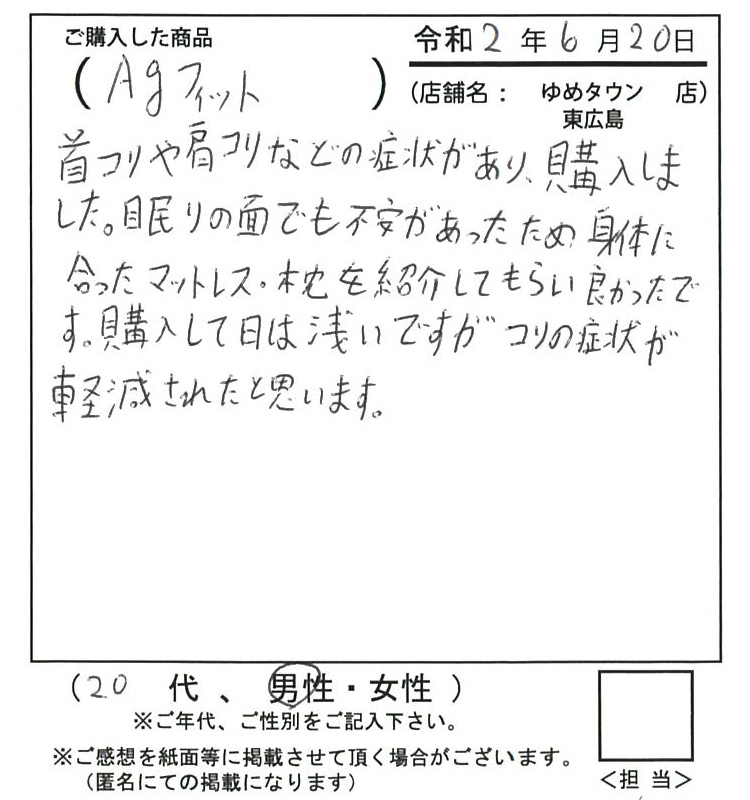 ご購入した商品
令和2年6月20日
(Agフィット)
(店舗名： ゆめタウン 東広島 店)
首コリや肩コリなどの症状があり、購入しま
した。眠りの面でも不安があったため身体に
合ったマットレス・枕を紹介してもらい良かったで
す。購入して日は浅いですがコリの症状が
軽減されたと思います。
(20 代、男性・女性)
※ご年代、ご性別をご記入下さい。
※ご感想を紙面等に掲載させて頂く場合がございます。
（匿名にての掲載になります）
＜担 当＞